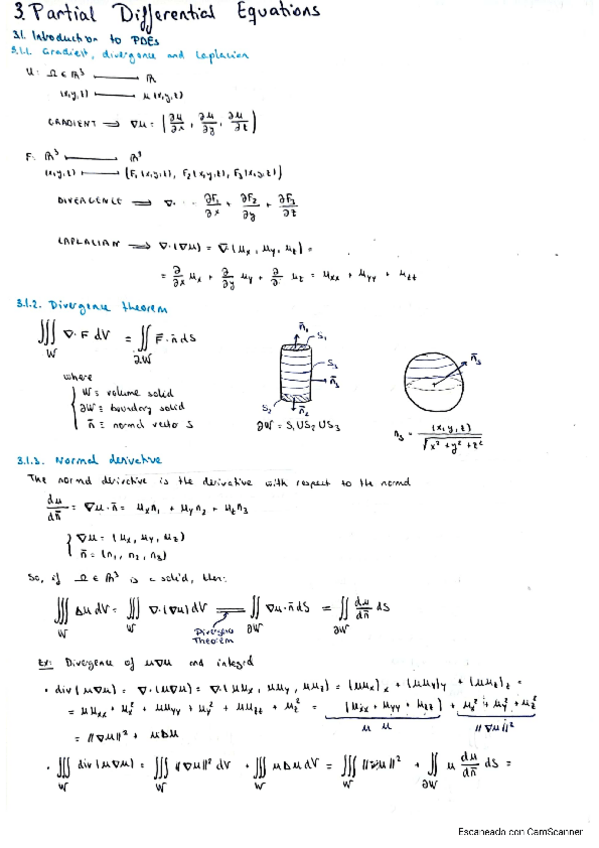 3. Partial Differential Equations
3.1. Introduction to PDEs
3.1.1. Gradient, divergence and Laplacian
u: Ω ∈ ℝ³ ⟶ ℝ
(x,y,z) ⟶ u(x,y,z)
GRADIENT ⟹ ∇u = (∂u/∂x, ∂u/∂y, ∂u/∂z)
F: ℝ³ ⟶ ℝ³
(x,y,z) ⟶ (F₁(x,y,z), F₂(x,y,z), F₃(x,y,z))
DIVERGENCE ⟹ ∇· ∂F₁/∂x + ∂F₂/∂y + ∂F₃/∂z
LAPLACIAN ⟹ ∇·(∇u) = ∇(u_x, u_y, u_z) =
= ∂/∂x u_x + ∂/∂y u_y + ∂/∂ u_z = u_xx + u_yy + u_zz
3.1.2. Divergence theorem
∭_W ∇·F dV = ∬_∂W F̄·n̄ dS
where
W ≡ volume solid
∂W ≡ boundary solid
n̄ ≡ normal vector S
n̄₁ S₁
S₃ n̄₃
S₂ n̄₂
∂W = S₁US₂US₃
n̄₃
n₃ = (x,y,z)/√(x²+y²+z²)
3.1.3. Normal derivative
The normal derivative is the derivative with respect to the normal
du/dn̄ = ∇u·n̄ = u_x n₁ + u_y n₂ + u_z n₃
∇u = (u_x, u_y, u_z)
n̄ = (n₁, n₂, n₃)
So, if Ω ∈ ℝ³ is a solid, then:
∭_W Δu dV = ∭_W ∇·(∇u) dV = ∬_∂W ∇u·n̄ dS = ∬_∂W du/dn̄ dS
Divergence
Theorem
Ex: Divergence of u∇u and integral
· div(u∇u) = ∇·(u∇u) = ∇·(uu_x, uu_y, uu_z) = (uu_x)_x + (uu_y)_y + (uu_z)_z =
= uu_xx + u_x² + uu_yy + u_y² + uu_zz + u_z² = (u_xx + u_yy + u_zz) + u_x² + u_y² + u_z²
u u ||∇u||²
= ||∇u||² + uΔu
· ∭_W div(u∇u) = ∭_W ||∇u||² dV · ∭_W uΔu dV = ∭_W ||∇u||² + ∬_∂W u du/dn̄ dS =
Escaneado con CamScanner